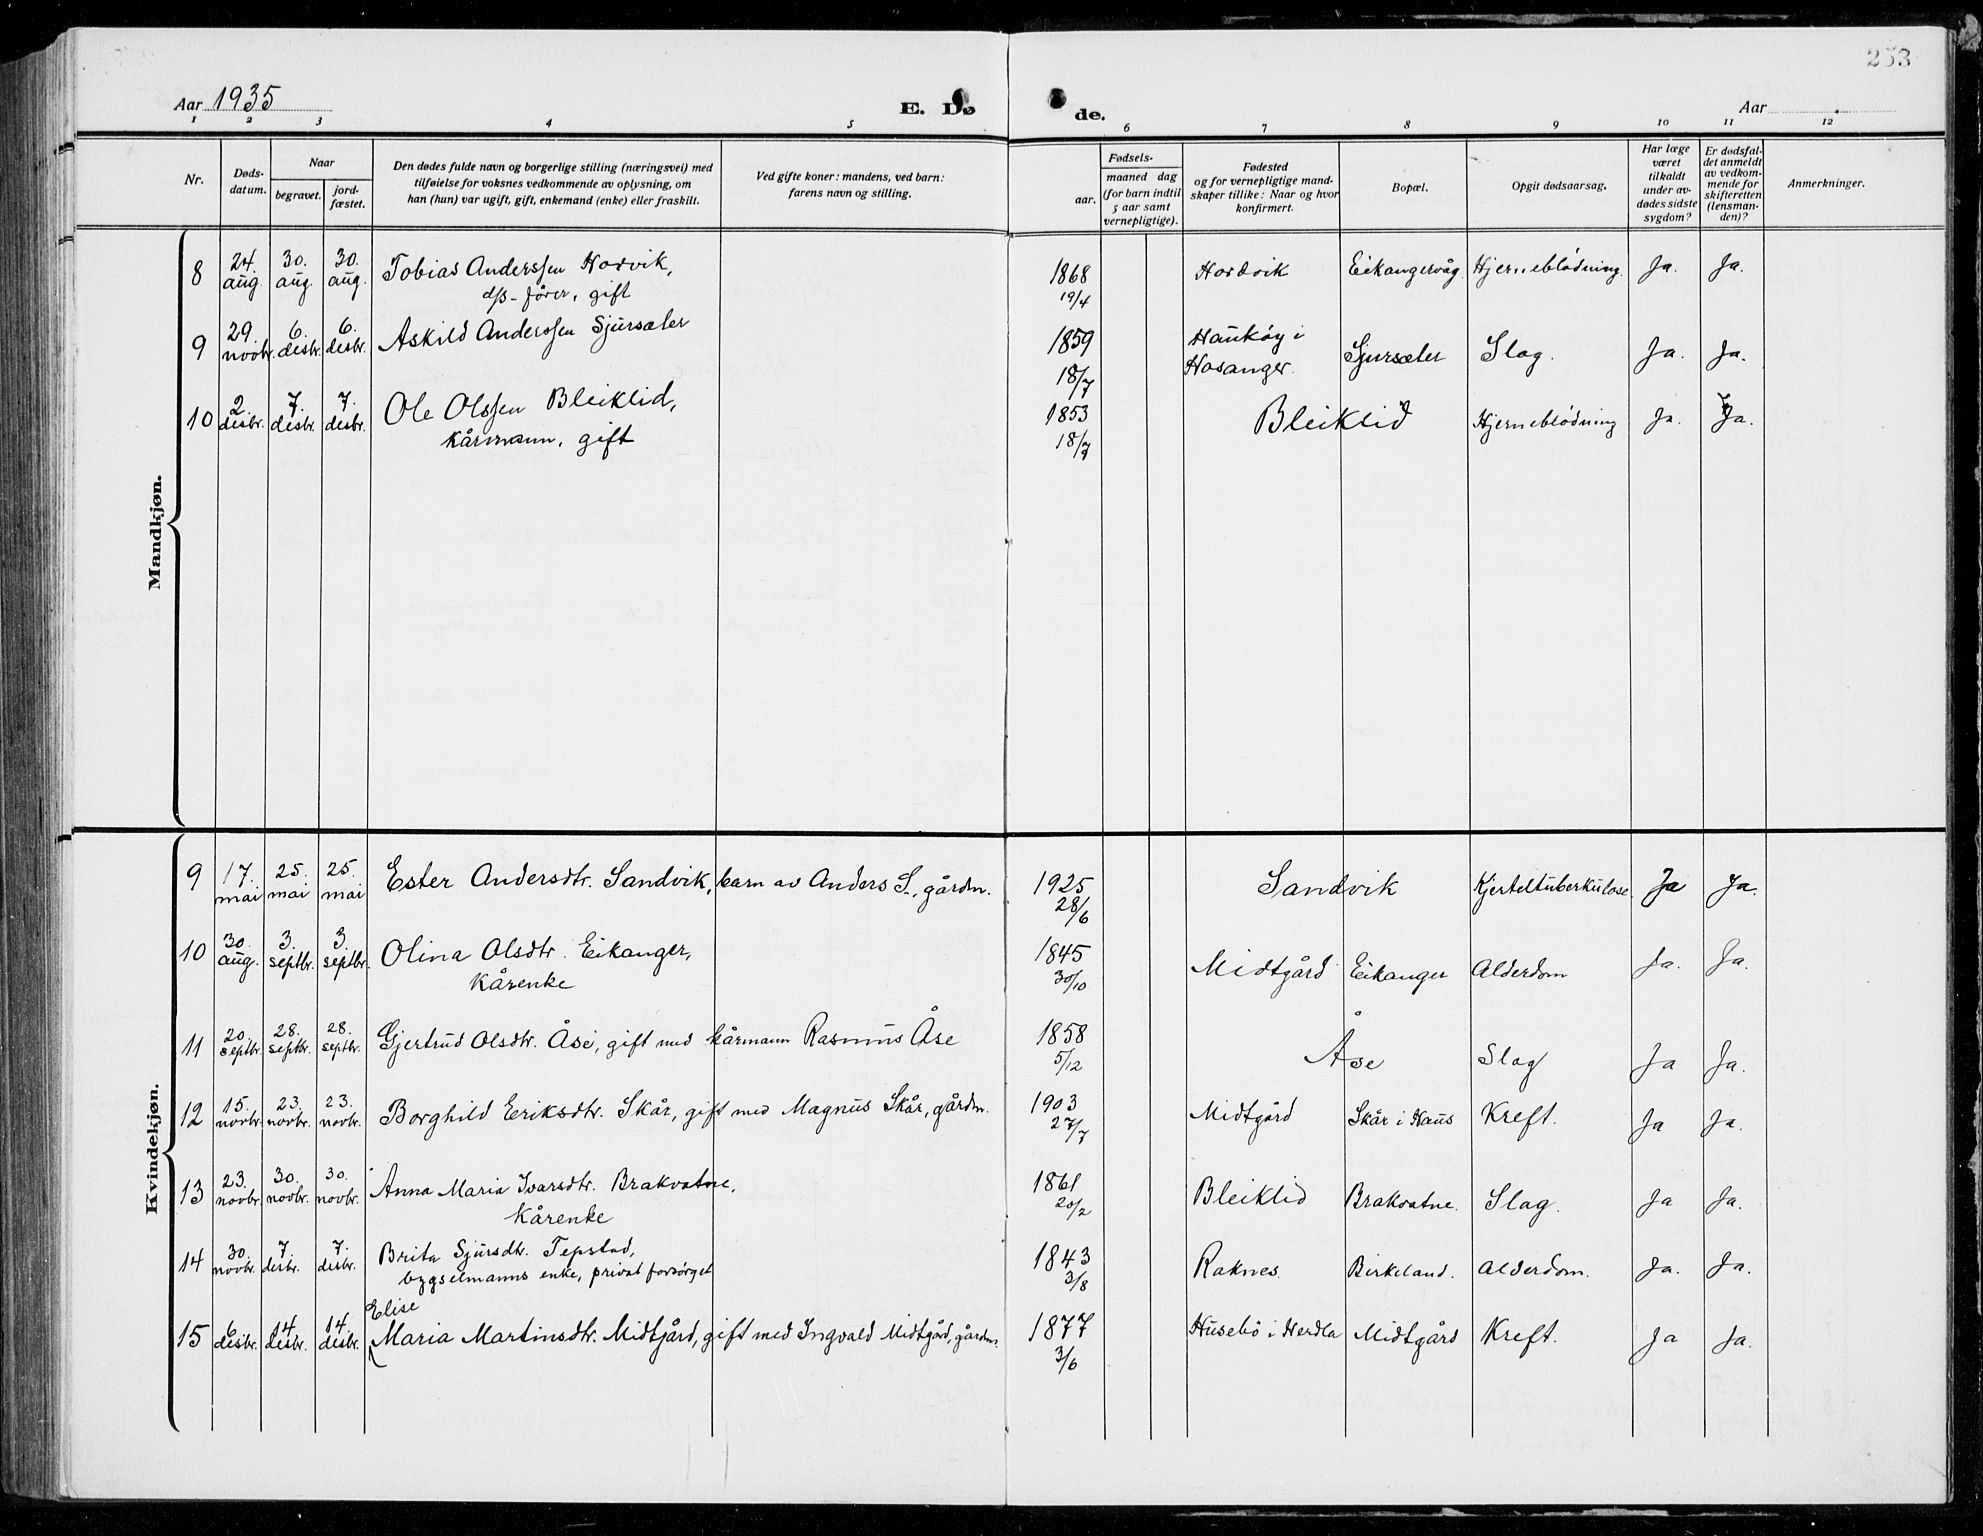 253
Aar 1935
E. Dø
de.
Aar
1 2 3 4 5 6 7 8 9 10 11 12
Nr.
Døds-
datum.
Naar
begravet.
jord-
fæstet.
Den dødes fulde navn og borgerlige stilling (næringsvei) med
tilføielse for voksnes vedkommende av oplysning, om
han (hun) var ugift, gift, enkemand (enke) eller fraskilt.
Ved gifte koner: mandens, ved barn:
farens navn og stilling.
Fødsels-
aar.
maaned dag
(for barn indtil
5 aar samt
vernepligtige).
Fødested
og for vernepligtige mand-
skaper tillike: Naar og hvor
konfirmert.
Bopæl.
Opgit dødsaarsag.
Har læge
været
tilkaldt
under av-
dødes sidste
sygdom?
Er dødsfal-
det anmeldt
av vedkom-
mende for
skifteretten
(lensman-
den)?
Anmerkninger.
Mandkjøn.
8 24. aug. 30. aug. 30. aug. Tobias Anderssen Horvik, 1868 Hordvik Eikangervåg Hjerneblödning. Ja. Ja.
d/s-fører, gift 19/4
9 29. novbr. 6. desbr. 6. desbr. Askild Anderssen Sjursæter 1859 Hauköy i Hosanger. Sjursæter Slag. Ja. Ja.
18/7
10 2. desbr. 7. desbr. 7. desbr. Ole Olssen Bleiklid, 1853 Bleiklid Hjerneblödning Ja. Ja.
kårmann, gift 18/7
Kvindekjøn.
9 17. mai 25. mai 25. mai Ester Andersdtr. Sandvik, barn av Anders S., gårdm. 1925 Sandvik Kjerteltuberkulose. Ja Ja.
28/6
10 30. aug. 3. septbr. 3. septbr. Olina Olsdtr. Eikanger, 1845 Midtgård Eikanger Alderdom Ja. Ja.
Kårenke 30/10
11 20. septbr. 28. septbr. 28. septbr. Gjertrud Olsdtr. Åse, gift med kårmann Rasmus Åse 1858 Åse Slag Ja Ja.
5/12
12 15. novbr. 23. novbr. 23. novbr. Borghild Eriksdtr. Skår, gift med Magnus Skår, gårdm. 1903 Midtgård Skår i Haus Kreft. Ja Ja.
27/7
13 23. novbr. 30. novbr. 30. novbr. Anna Maria Ivarsdtr. Brakvatne, 1861 Bleiklid Brakvatne. Slag. Ja Ja.
Kårenke 20/2
14 30. novbr. 7. desbr. 7. desbr. Brita Sjursdtr. Tepstad, 1843 Raknes. Birkeland. Alderdom. Ja. Ja.
bygselmanns enke, privat forsörget 3/8
Elise
15 6. desbr. 14. desbr. 14. desbr. Maria Martinsdtr. Midtgård, gift med Ingvald Midtgård, gårdm. 1877 Husebö i Herdla Midtgård Kreft. Ja Ja.
3/6